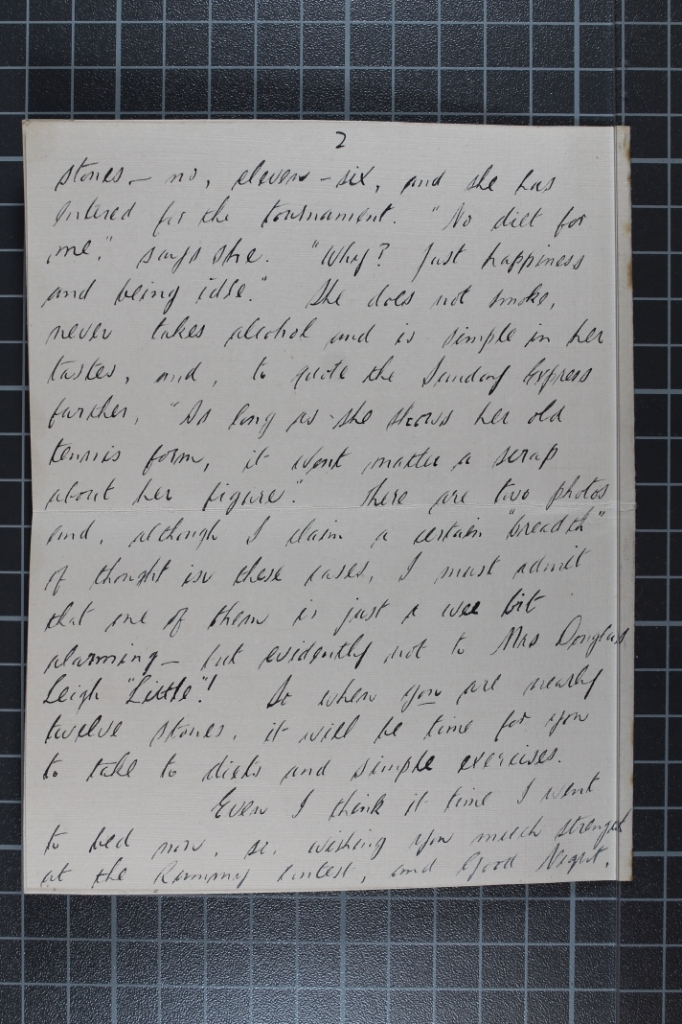 2
stones – no, eleven – six, and she has
entered for the tournament. "No diet for
me," says she. "Why? Just happiness
and being idle." She does not smoke,
never takes alcohol and is simple in her
tastes, and, to quote the Sunday Express
further, "So long as she shows her old
tennis form, it wont matter a scrap
about her figure". There are two photos
and, although I claim a certain "breadth"
of thought in these cases, I must admit
that one of them is just a wee bit
alarming – but evidently not to Mrs Douglas
Leigh "Little"! So when you are nearly
twelve stones, it will be time for you
to take to diets and simple exercises.
Even I think it time I went
to bed now, so, wishing you much strength
at the Rummy contest, and Good Night,